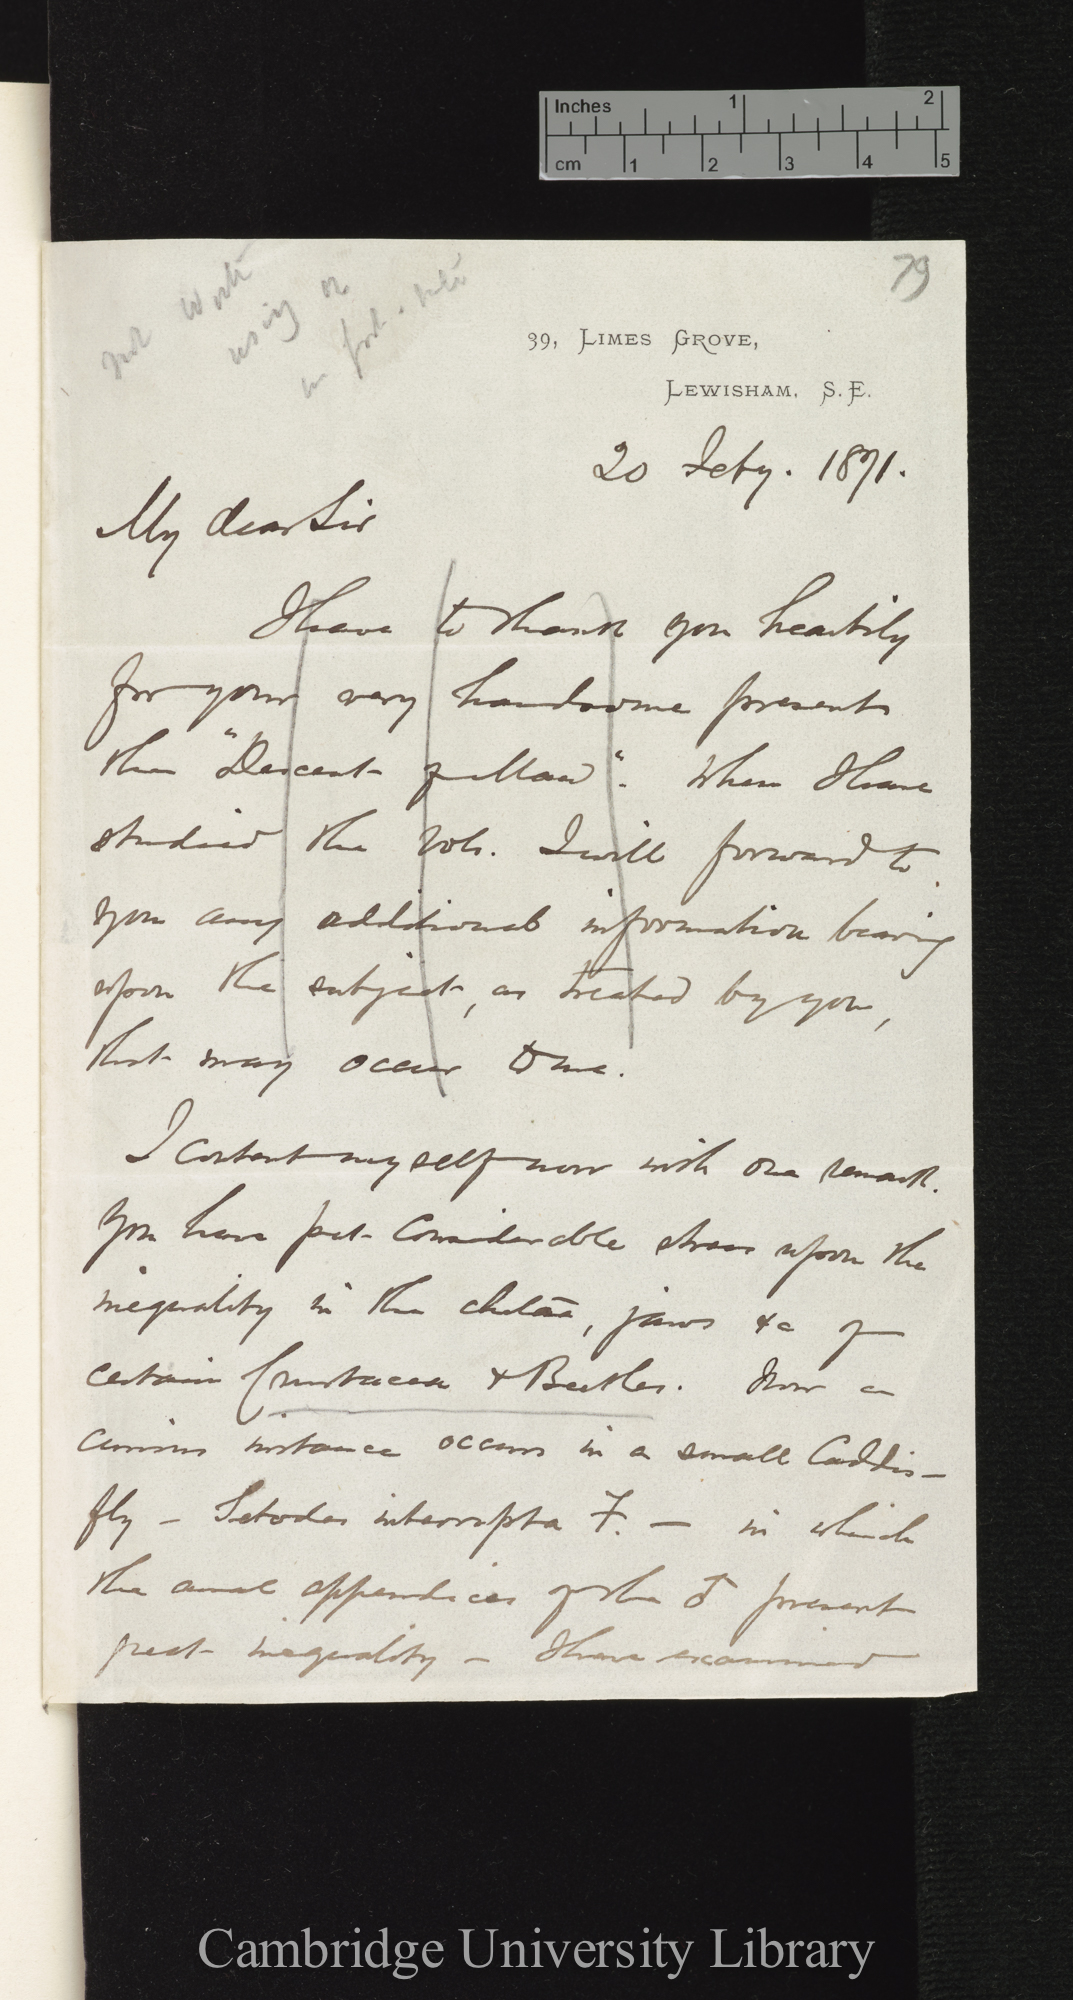 Inches 1 2
cm 1 2 3 4 5
79
not worth
using or
in foot-note
39, Limes Grove,
Lewisham, S.E.
20 Feby. 1871.
My dear Sir
I have to thank you heartily
for your very handsome present
the "Descent of Man". When I have
studied the vols. I will forward to
you any additional information bearing
upon the subject, as treated by you,
that may occur to me.
I content myself now with one remark.
You have put considerable stress upon the
inequality in the chelae, jaws &c of
certain Crustacea & Beetles. Now a
curious instance occurs in a small Caddis-
fly – Setodes interrupta F. – in which
the anal appendices of the ♂ present
great inequality – I have examined
Cambridge University Library